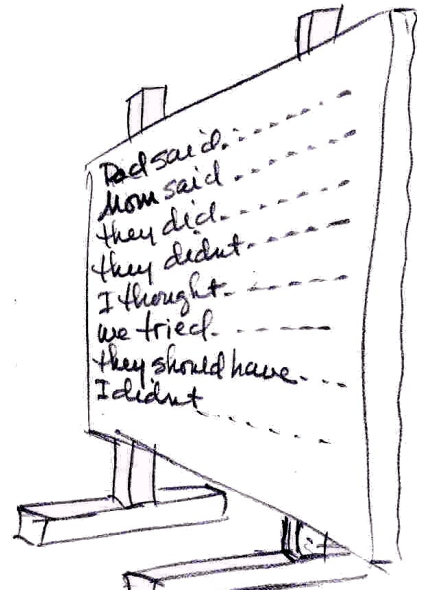 Dad said.
Mom said
they did.
they didnt.
I thought.
we tried.
they should have.
I didnt